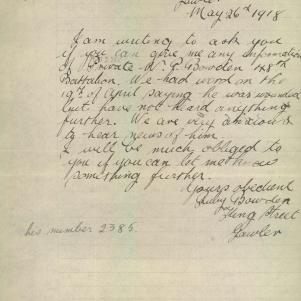 Gawler
May 26th 1918
I am writing to ask you
if you can give me any information
of Private W. R. Bowden 48th
Battalion. We had word on the
19th of April saying he was wounded
but have not heard anything
further. We are very anxious
to hear news of him.
I will be much obliged to
you if you can let me know
something further.
Yours obedient
Ruby Bowden
King Street
Gawler
his number 2385.